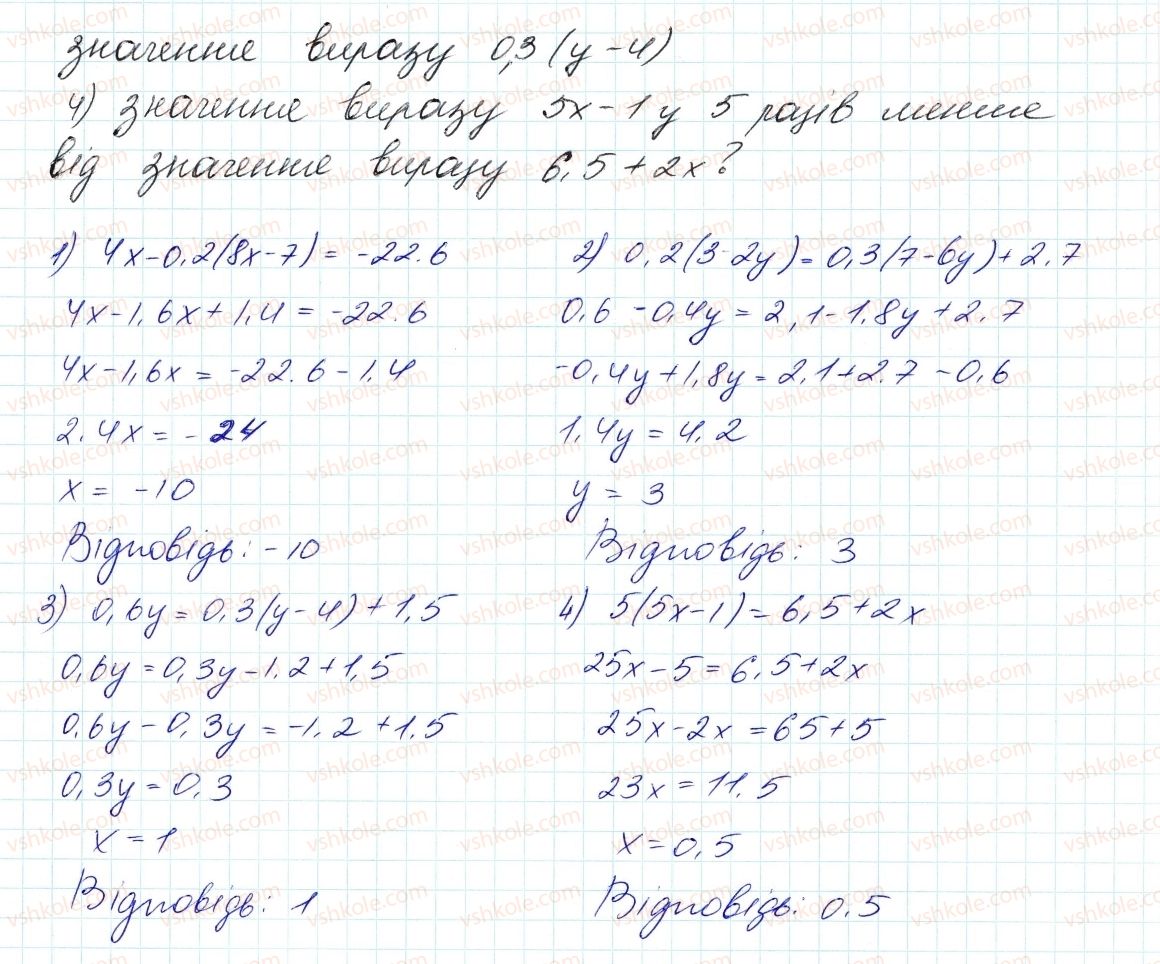 значення виразу 0,3(y-4)
4) значення виразу 5x-1 у 5 разів менше
від значення виразу 6,5+2x?
1) 4x-0,2(8x-7)=-22.6
4x-1,6x+1,4=-22.6
4x-1,6x=-22.6-1.4
2.4x=-24
x=-10
Відповідь: -10
2) 0,2(3-2y)=0,3(7-6y)+2.7
0,6-0,4y=2,1-1.8y+2.7
-0,4y+1,8y=2.1+2.7-0,6
1,4y=4,2
y=3
Відповідь: 3
3) 0,6y=0,3(y-4)+1,5
0,6y=0,3y-1.2+1,5
0.6y-0,3y=-1.2+1.5
0,3y=0,3
x=1
Відповідь: 1
4) 5(5x-1)=6,5+2x
25x-5=6,5+2x
25x-2x=65+5
23x=11.5
x=0,5
Відповідь: 0.5
vshkole.com